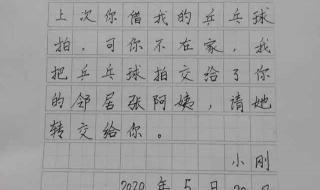 上次你借我的乒乓球
拍，可你不在家，我
把乒乓球拍交给了你
的邻居张阿姨，请她
转交给你。
小刚
2020年5月20日